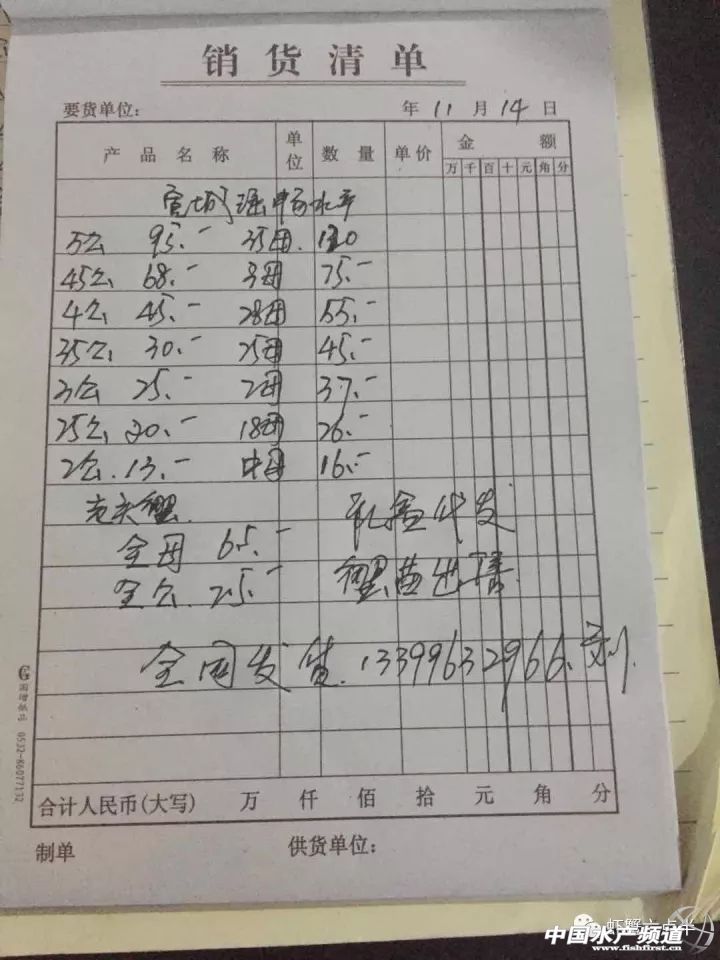 销货清单
要货单位： 年 11 月 14 日
产品名称 单位 数量 单价 金额
万 千 百 十 元 角 分
宣城 水平
5公 95.- 35母. 120
45公 68.- 3母 75.-
4公 45.- 28母 55.-
35公 30.- 25母 45.-
3公 25.- 2母 37.-
25公 20.- 18母 26.-
2公. 13.- 中母 16.-
蟹. 礼盒代发
全母 65.-
全公. 25.- 蟹苗出售
全国发货. 13399632966.
国增纸品 0532-86077132
合计人民币(大写) 万 仟 佰 拾 元 角 分
制单 供货单位：
虾蟹六点半
中国水产频道
www.fishfirst.cn